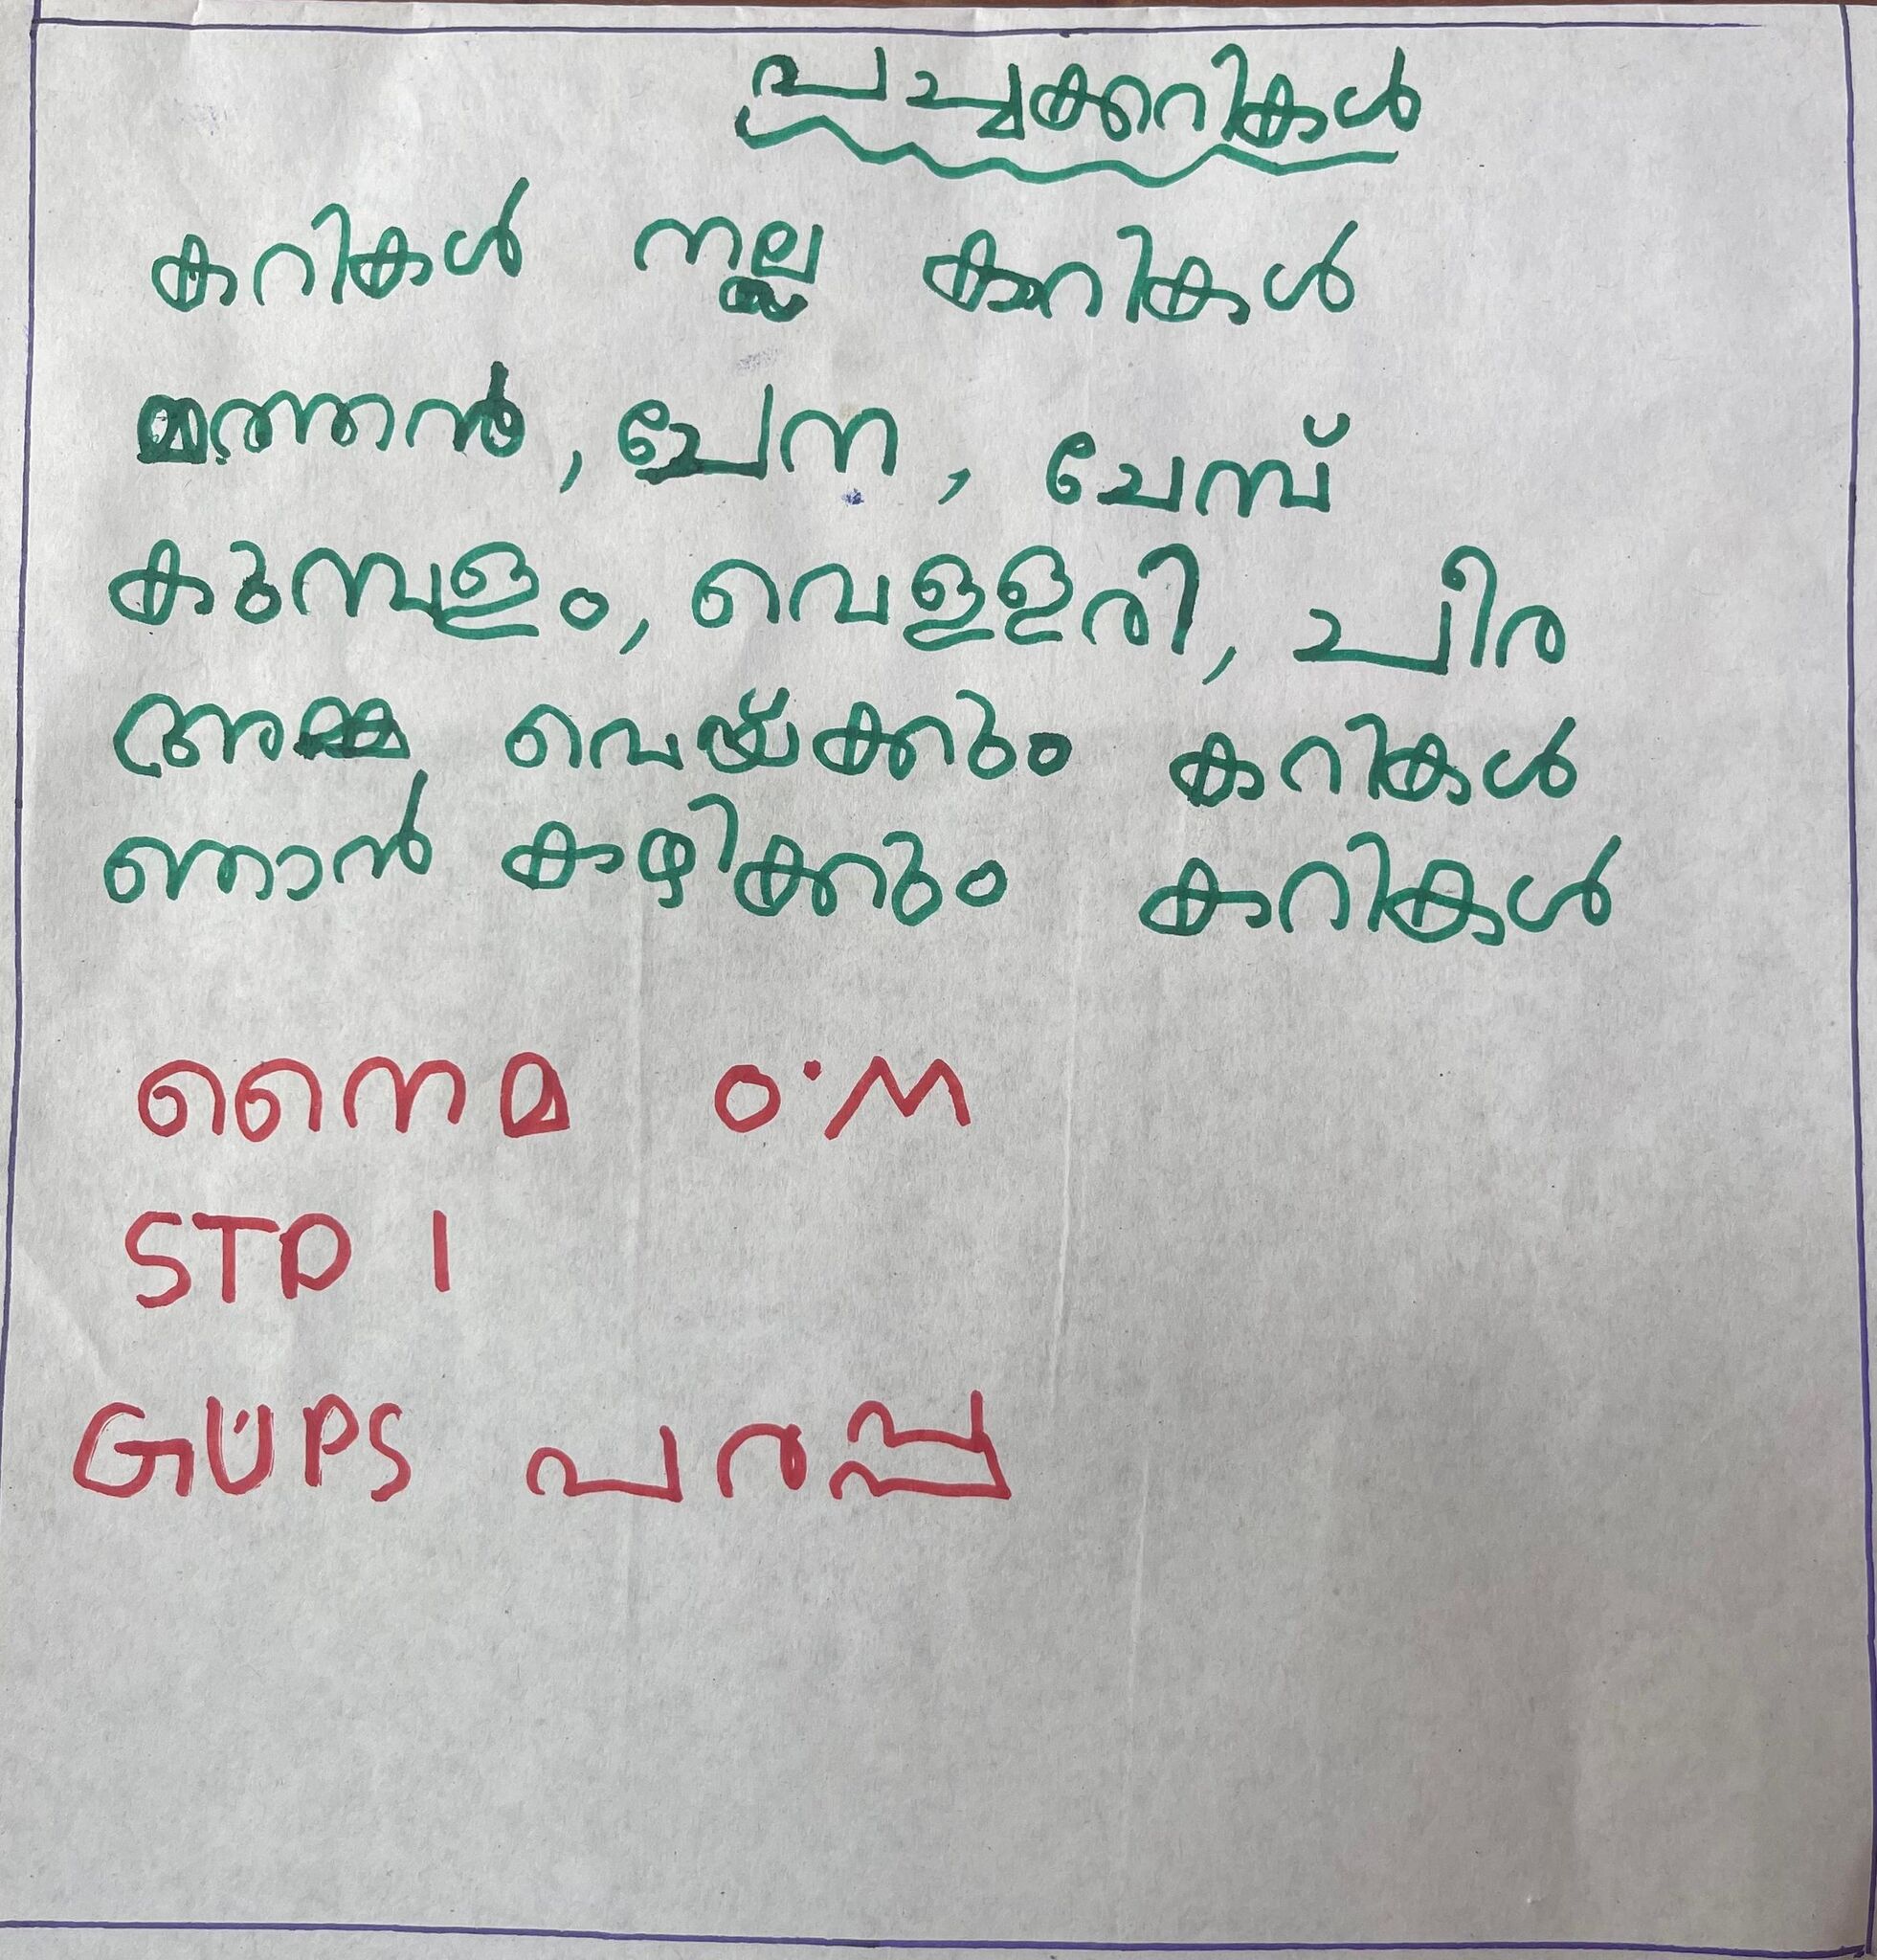 പച്ചക്കറികൾ
കറികൾ നല്ല കറികൾ
മത്തൻ, ചേന, ചേമ്പ്
കുമ്പളം, വെള്ളരി, ചീര
അമ്മ വെയ്ക്കും കറികൾ
ഞാൻ കഴിക്കും കറികൾ
നൈമ O.M
STD 1
GUPS പരപ്പ